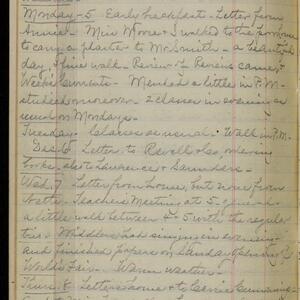 Monday - 5 Early breakfast - Letter from
Annie - Miss Moore & I walked to the
to carry a planter to Mr. Smith - a beautiful
day. A fine walk. Review of Reviews came, &
Weekly. Mended a little in P.M.
studied moreover - 2 classes in evening as
usual on Mondays.
Tuesday - Classes as usual - Walk in P.M.
Dec. 6 Letter to Revell & Co, ordering
books - also to Lawrence & Saunders -
Wed. 7 Letter from Louise, but none from
Teachers Meeting at 5 -
a little walk between 4 & 5 with the regular
had singing in evening -
and finished papers on
World's Fair. Warm weather -
Thurs. 8 Letters home & to